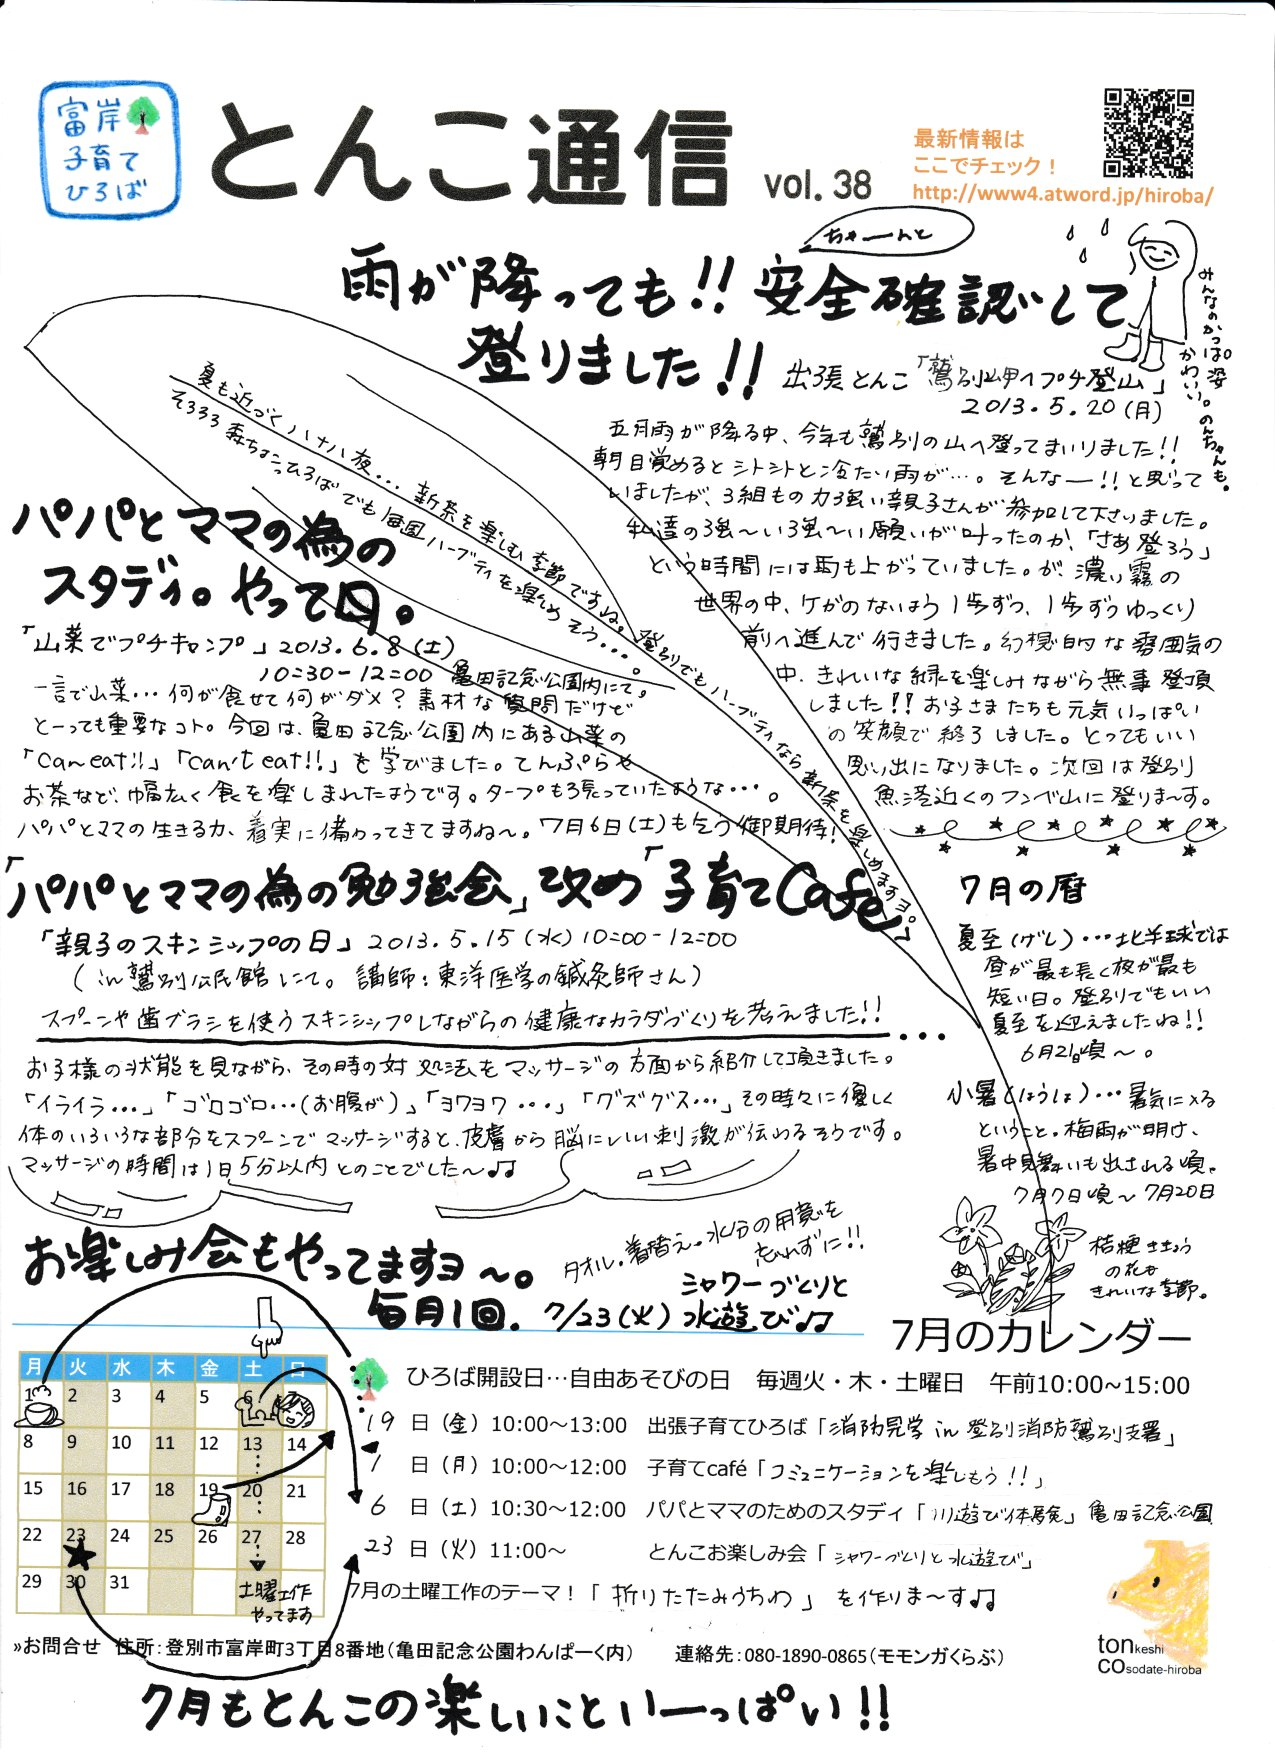 富岸
子育て
ひろば
とんこ通信 vol. 38
最新情報は
ここでチェック！
http://www4.atword.jp/hiroba/
ちゃーんと
雨が降っても!! 安全確認して
登りました!!
出張とんこ「鷲別岬へプチ登山」
2013.5.20(月)
みんなのかっぱ姿
かわいい。のんちゃんも。
五月雨が降る中、今年も鷲別の山へ登ってまいりました!!
朝目覚めるとシトシトと冷たい雨が…。そんなー!!と思って
いましたが、3組もの力強い親子さんが参加して下さいました。
私達の強〜い強〜い願いが叶ったのか、「さあ登ろう」
という時間には雨も上がっていました。が、濃い霧の
世界の中、ケガのないよう1歩ずつ、1歩ずつゆっくり
前へ進んで行きました。幻想的な雰囲気の
中、きれいな緑を楽しみながら無事登頂
しました!!お子さまたちも元気いっぱい
の笑顔で終了しました。とってもいい
思い出になりました。次回は登別
漁港近くのフンベ山に登りま〜す。
夏も近づく八十八夜… 新茶を楽しむ季節ですね。登別でもハーブティなら新茶を楽しめますヨ。
そろそろ森ちょこっひろばでも自園ハーブティを楽しめそう…。
パパとママの為の
スタディ。やって口。
「山菜でプチキャンプ」2013.6.8(土)
10:30-12:00 亀田記念公園内にて。
一言で山菜…何が食せて何がダメ？素朴な質問だけど
とーっても重要なコト。今回は、亀田記念公園内にある山菜の
「Can eat!!」「can't eat!!」を学びました。てんぷらや
お茶など、幅広く食を楽しまれたようです。タープも張っていたような…。
パパとママの生きる力、着実に備わってきてますね〜。7月6日(土)も乞う御期待!
「パパとママの為の勉強会」改め「子育てCafe」
「親子のスキンシップの日」2013.5.15(水)10:00-12:00
(in鷲別公民館にて。講師：東洋医学の鍼灸師さん)
スプーンや歯ブラシを使うスキンシップしながらの健康なカラダづくりを考えました!!…
お子様の状態を見ながら、その時の対処法をマッサージの方面から紹介して頂きました。
「イライラ…」「ゴロゴロ…(お腹が)」「ヨワヨワ…」「グズグズ…」その時々に優しく
体のいろいろな部分をスプーンでマッサージすると、皮膚から脳にいい刺激が伝わるそうです。
マッサージの時間は1日5分以内とのことでした〜♫
7月の暦
夏至(げし)…北半球では
昼が最も長く夜が最も
短い日。登別でもいい
夏至を迎えましたね!!
6月21日頃〜。
小暑(しょうしょ)…暑気に入る
ということ。梅雨が明け、
暑中見舞いも出される頃。
7月7日頃〜7月20日
桔梗ききょう
の花も
きれいな季節。
お楽しみ会もやってますヨ〜。
毎月1回。7/23(火)
シャワーづくりと
水遊び♫
タオル・着替え・水分の用意を
忘れずに!!
7月のカレンダー
月 火 水 木 金 土 日
1 2 3 4 5 6 7
8 9 10 11 12 13 14
15 16 17 18 19 20 21
22 23 24 25 26 27 28
29 30 31
土曜工作
やってます
ひろば開設日…自由あそびの日 毎週火・木・土曜日 午前10:00~15:00
19 日（金）10:00～13:00 出張子育てひろば「消防見学 in 登別消防鷲別支署」
1 日（月）10:00～12:00 子育てcafé「コミュニケーションを楽しもう!!」
6 日（土）10:30～12:00 パパとママのためのスタディ「川遊び体験」亀田記念公園
23 日（火）11:00～ とんこお楽しみ会「シャワーづくりと水遊び」
7月の土曜工作のテーマ！「折りたたみうちわ」を作りま〜す♫
»お問合せ 住所：登別市富岸町3丁目8番地（亀田記念公園わんぱーく内） 連絡先：080-1890-0865（モモンガくらぶ）
tonkeshi
COsodate-hiroba
7月もとんこの楽しいこといーっぱい!!